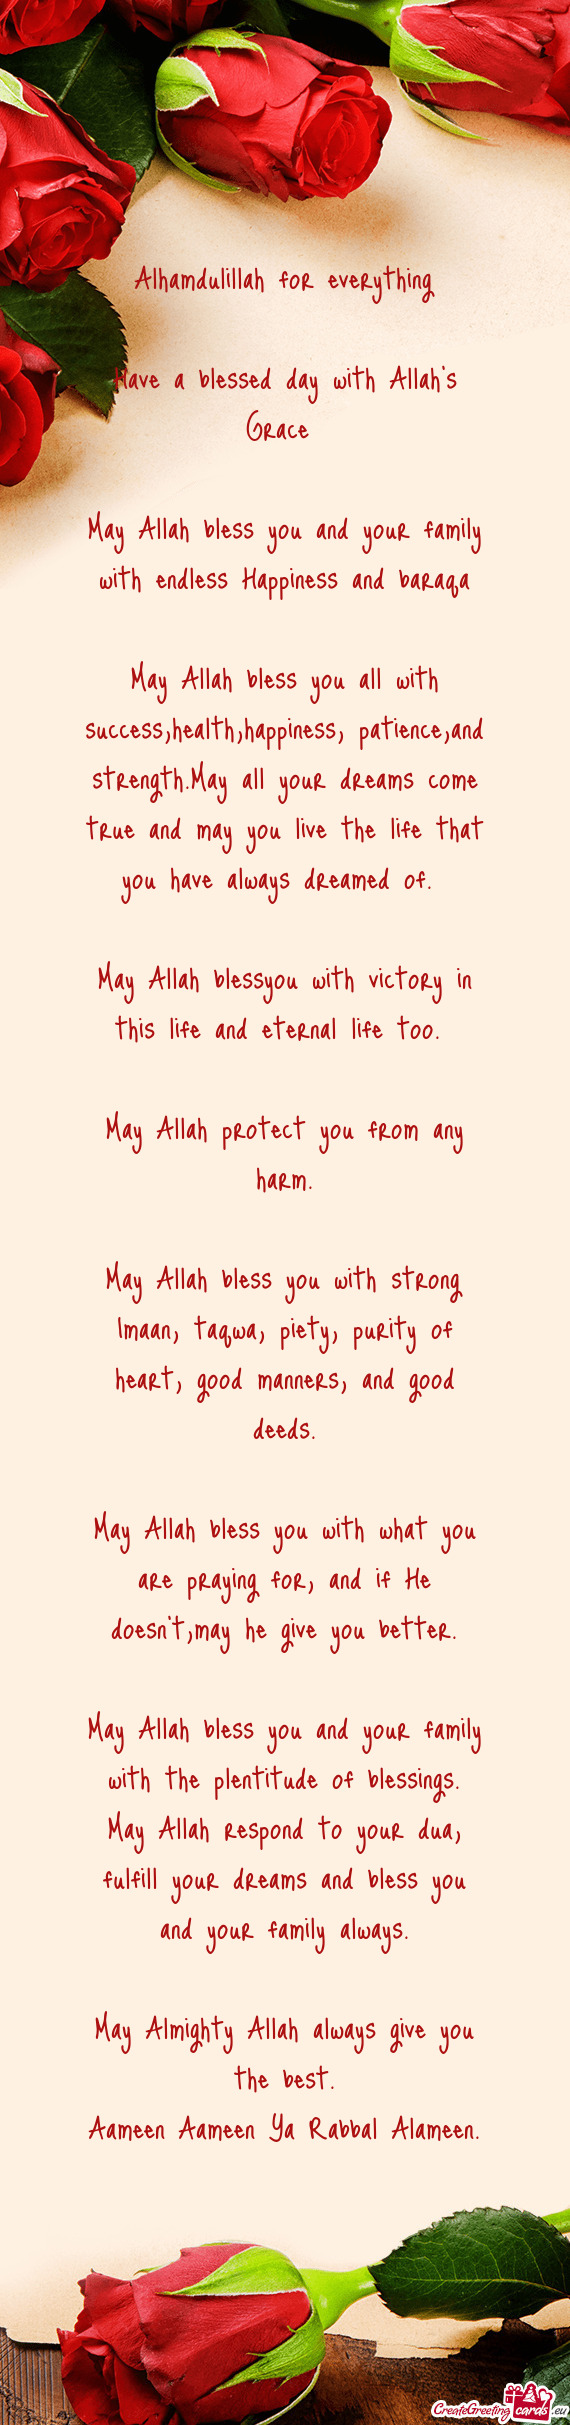 Alhamdulillah for everything
Have a blessed day with Allah's
Grace
May Allah bless you and your family
with endless Happiness and baraqa
May Allah bless you all with
success,health,happiness, patience,and
strength.May all your dreams come
true and may you live the life that
you have always dreamed of.
May Allah blessyou with victory in
this life and eternal life too.
May Allah protect you from any
harm.
May Allah bless you with strong
Imaan, taqwa, piety, purity of
heart, good manners, and good
deeds.
May Allah bless you with what you
are praying for, and if He
doesn't,may he give you better.
May Allah bless you and your family
with the plentitude of blessings.
May Allah respond to your dua,
fulfill your dreams and bless you
and your family always.
May Almighty Allah always give you
the best.
Aameen Aameen Ya Rabbal Alameen.
CreateGreetingcards.eu